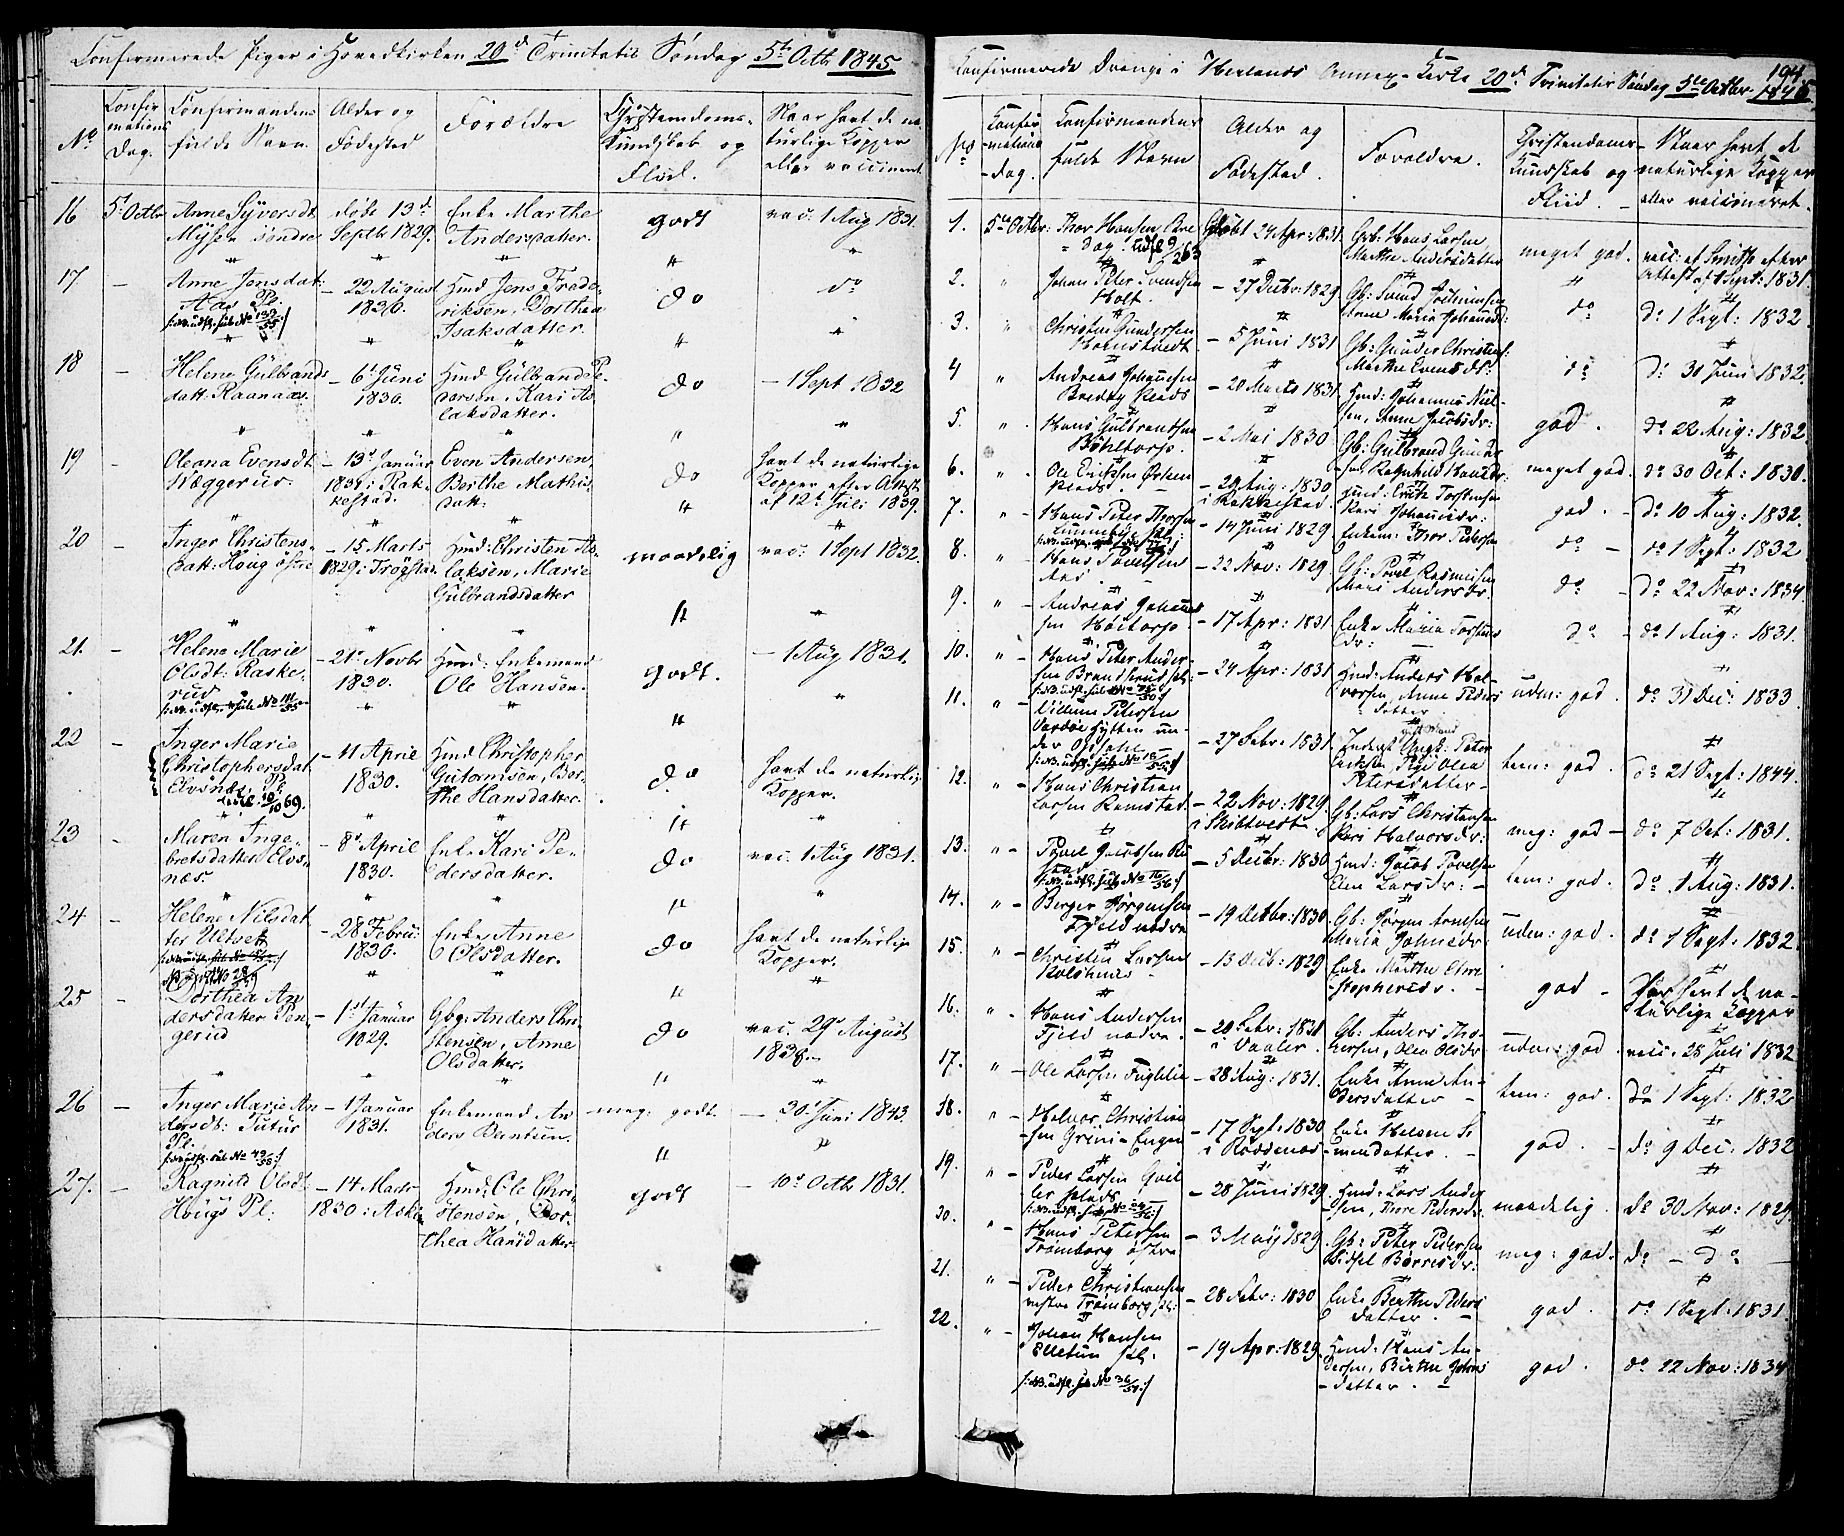 Confirmerede Piger i Hovedkirken 20d Trinitatis Søndag 5te Octb 1845
No
Confirmations Dag.
Confirmandens fulde Navn.
Alder og Fødested
Forældre
Christendoms-Kundskab og Fliid.
Naar havt de naturlige Kopper eller vaccineret
16 5t Octb Anne Syversdt Mysen søndre døbt 13d Septb 1829. Enke Marthe Andersdatter. godt vac. 1 Aug 1831.
17 — Anne Jensdat: Aas Pl. — 22 August 1830. Hmd Jens Frederiksen, Dorthea Isaksdatter. do do
18 — Helene Gulbrandsdatt: Raanaas. — 6t Juni 1830. Hmd Gulbrand Pedersen, Kari Aslaksdatter. do — 1 Sept 1832
19 — Oleana Evensdt Næggerud. — 13d Januar 1831 i Rakkestad. Even Andersen, Berthe Mathisdatt: do Havt de naturlige Kopper efter Attest af 12t Juli 1839.
20 — Inger Christensdatt: Houg østre — 15 Marts 1829 i Trøgstad. Hmd: Christen Aslaksen, Marie Gulbrandsdatter maadelig vac: 1 Sept 1832.
21. — Helene Marie Olsdt. Raskerud — 21d Novbr 1830. Hmd: Enkemand Ole Hansen. godt. — 1 Aug 1831.
22 — Inger Marie Christophersdat Elvsnæs Pl. — 11 April 1830. Hmd Christopher Guttormsen, Berthe Hansdatter. do. Havt de naturlig Kopper.
23 — Maren Ingebretsdatter Elvsnæs. — 8d April 1830. Enke Kari Pedersdatter. do vac. 1 Aug 1831.
24 — Helene Nilsdatter Ultvett — 28 Februar 1830. Enke Anne Olsdatter. do Havt de naturlige Kopper.
25 — Dorthea Andersdatter Pengerud — 1d Januar 1829. Gbg: Anders Christensen, Anne Olsdatter. do vac. 29d August 1838.
26 — Inger Marie Andersdt: Tutur Pl. — 1 Januar 1831. Enkemand Anders Berntsen. meg: godt. — 30t Juni 1843.
27. — Ragnild Olsdt Hougs Pl: — 14 Marts 1830 i Askim Hmd: Ole Christensen, Dorthea Hansdatter godt — 10d Octb 1831.
194.
Confirmerede Drenge i Herlands Annex-Kirke 20d Trinitatis Søndag 5te Octbr 1845
No
Confirmations-dag.
Confirmandens fulde Navn
Alder og Fødested.
Forældre.
Christendoms-Kundskab og Fliid.
Naar havt de naturlige Kopper eller vaccineret.
1. 5te Octbr: Thor Hansen Bredag døbt 24 Apr: 1831. Grb: Hans Larsen, Marthe Andersdatter meget god. vacc: af Smitt efter Attest af 1 Sept: 1831.
2. " Johan Peter Svendsen Holt. — 27 Decbr: 1829 Gb: Svend Jochumsen Anne Maria Johansd: do do 1 Sept: 1832.
3. " Christen Gundersen Hornstvedt — 5 Juni 1831 Gb: Gunder Christens: Marthe Evensdt: do do 30 Juni 1832.
4 " Andreas Johansen Bredby Plads — 20 Marts 1831 Hmd: Johannes Nielsen, Anne Jacobsdr: god. do 22 Aug: 1832.
5. " Hans Gulbrandsen Böhltorp — 2 Mai 1830 Gb: Gulbrand Gundersen Ragnhild Hansdr: meget god. do 30 Oct: 1830.
6. " Ole Ericksen Østern Plads. — 29 Aug: 1830 i Rakkestad. Hmd: Erik Torstensen Kari Johannesdr: god. do 10 Aug: 1832.
7. " Hans Peter Thorsen — 14 Juni 1829 Enkem: Thor Pedersen do — do 1 Sept: 1832
8. " Hans Povelsen Aas — 22 Nov: 1829 Gb: Povel Rasmusen Mari Andersdr. do do 22 Nov: 1834.
9. " Andreas Johansen Høitorp — 17 Apr: 1831. Enke Maria Torstensdr: do do 1 Aug: 1831.
10. " Hans Peter Andersen Brandsrud pl: — 24 Apr: 1831 Hmd: Anders Halvorsen, Anne Pedersdatter uden: god do 31 Dec: 1833.
11. " Villum Petersen Vardöe Hytten under Opsahl — 27 Febr: 1831 Ungk: Peter, Pige Olea Petersdatter — tem: god. do 21 Sept: 1844.
12. " Hans Christian Larsen Ramstad — 22 Nov: 1829. i Skibtvedt Gb: Lars Christensen Kari Halvorsdr: meg: god — do 7 Oct: 1831.
13. " Povel Jacobsen Rustad — 5 Decbr: 1830 Hmd: Jacob Povelsen Elen Larsdr: — tem: god. do 1 Aug: 1831.
14. " Berger Jörgensen Fjeld nedre — 19 Decbr: 1830 Gb: Jørgen Arnesen Maria Johnsdr: uden: god. do 1 Sept: 1832.
15. " Christen Larsen Kolshuus — 13 Decb: 1829 Enke Marthe Christophersdr. — god — Har havt de naturlige Kopper
16. " Hans Andersen Fjeld nedre. — 20 Febr: 1831 i Vaaler. Gb: Anders Thoresen, Olea Olsdr uden: god. vacc: 28 Juli 1832
17. " Ole Larsen Fuglelie — 28 Aug: 1831. Enke Anne Andersdatter — tem: god. do 1 Sept: 1832
18. " Halvor Christiansen Grini-Engen — 17 Sept: 1830 i Rødenæs Enke Helene Simensdatter. — god — do 9 Dec: 1832
19. " Peder Larsen plads — 28 Juni 1829 Hmd: Lars Andersen, Thore Pedersdr. maadelig. do 30 Nov: 1829.
20. " Hans Petersen Trømborg østre — 3 May 1829 Gb: Peter Pedersen Sidsel Børresdr. meg: god. do — do
21. " Peder Christiansen vestre Trømborg pl: — 28 Febr: 1830 Enke Berthe Pedersdatter. — god. do 1 Sept: 1831.
22. " Johan Hansen Elletun pl. — 19 Apr: 1829. Hmd: Hans Andersen, Berthe Johnsdatter. — god. do 22 Nov: 1834